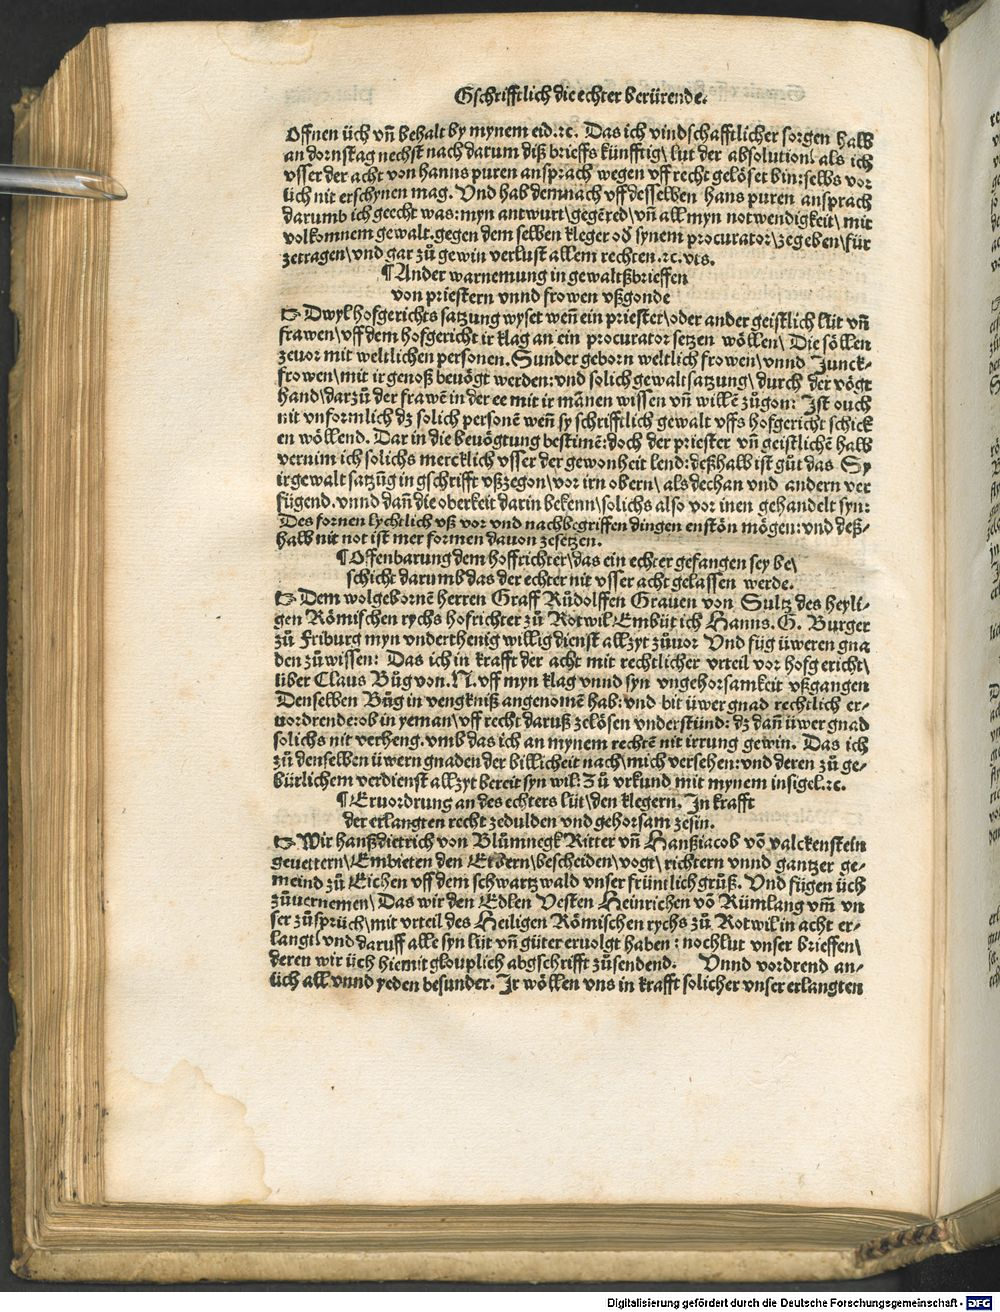 Gschrifftlich die echter berürende.
offnen üch vñ behalt by mynem eid.⁊c. Das ich vindschafftlicher sorgen halb
an dornstag nechst nach datum diß brieffs künfftig\ lut der absolution\ als ich
vsser der acht von hanns puren ansprach wegen vff recht gelöset bin: selbs vor
lich nit erschynen mag. Vnd hab demnach vff desselben hans puren ansprach
darumb ich geecht was: myn antwurt\ gegēred\ vñ all myn notwendigkeit\ mit
volkomnem gewalt. gegen dem selben kleger od synem procurator\ zegeben\ für
zetragen\ vnd gar zů gewin verlust allem rechten.⁊c. vts.
¶ Ander warnemung in gewaltßbrieffen
von priestern vnnd frowen vßgonde
☞ Dwyl hofgerichts satzung wyset weñ ein priester\ oder ander geistlich lüt vñ
frawen\ vff dem hofgericht ir klag an ein procurator setzen wöllen\ Die söllen
zeuor mit weltlichen personen. Sunder geborn weltlich frowen\ vnnd Junck⸗
frowen\ mit ir genoß beuögt werden: vnd solich gewaltsatzung\ durch der vögt
hand\ darzů der frawē in der ee mit ir mānen wissen vñ willē zůgon: Ist ouch
nit vnformlich dz solich personē weñ sy schrifftlich gewalt vffs hofgericht schick
en wöllend. Dar in die beuögtung bestimē: doch der priester vñ geistlichē halb
vernim ich solichs mercklich vsser der gewonheit lend: deßhalb ist gůt das Sy
ir gewalt satzūg in gschrifft vßzegon\ vor irn obern\ als dechan vnd andern ver
fügend. vnnd dañ die oberkeit darin bekenn\ solichs also vor inen gehandelt syn:
Des formen lychtlich vß vor vnd nachbegriffen dingen enstōn mögen: vnd deß⸗
halb nit not ist mer formen dauon zesetzen.
¶ Offenbarung dem hoffrichter\ das ein echter gefangen sey be\
schicht darumb das der echter nit vsser acht gelassen werde.
☞ Dem wolgebornē herren Graff Růdolffen Grauen von Sultz des heyli⸗
gen Römischen rychs hofrichter zů Rotwil\ Embüt ich Hanns. G. Burger
zů Friburg myn vnderthenig willig dienst allzyt zůuor Vnd füg üweren gna
den zůwissen: Das ich in krafft der acht mit rechtlicher vrteil vor hofgericht\
über Claus Bůg von. N. vff myn klag vnnd syn vngehorsamkeit vßgangen
Denselben Bůg in vengkniß angenomē hab: vnd bit üwer gnad rechtlich er⸗
uordrende: ob in yeman\ vff recht daruß zelösen vnderstünd: dz dañ üwer gnad
solichs nit verheng. vmb das ich an mynem rechtē nit irrung gewin. Das ich
zů denselben üwern gnaden der billicheit nach\ mich versehen: vnd deren zů ge⸗
bürlichem verdienst allzyt bereit syn wil: Zů vrkund mit mynem insigel.⁊c.
¶ Eruordrung an des echters lüt\ den klegern. In krafft
der erlangten recht zedulden vnd gehorsam zesin.
☞ Wir hanßdietrich von Blůmnegk Ritter vñ Hanßiacob vō valckenstein
geuettern\ Embieten den Erbern\ bescheiden\ vogt\ richtern vnnd gantzer ge⸗
meind zů Eichen vff dem schwartzwald vnser früntlich grůß. Vnd fügen üch
zůuernemen\ Das wir den Edlen Vesten Heinrichen vō Rümlang vm̄ vn
ser zůsprüch\ mit vrteil des Heiligen Römischen rychs zů Rotwil in acht er⸗
langt\ vnd daruff alle syn lüt vñ güter eruolgt haben: noch lut vnser brieffen\
deren wir üch hiemit glouplich abgschrifft zůsendend. Vnnd vordrend an⸗
üch all vnnd yeden besunder. Ir wöllen vns in krafft solicher vnser erlangten
Digitalisierung gefördert durch die Deutsche Forschungsgemeinschaft - DFG